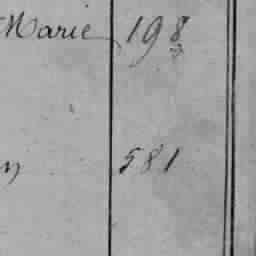 Marie 198
581